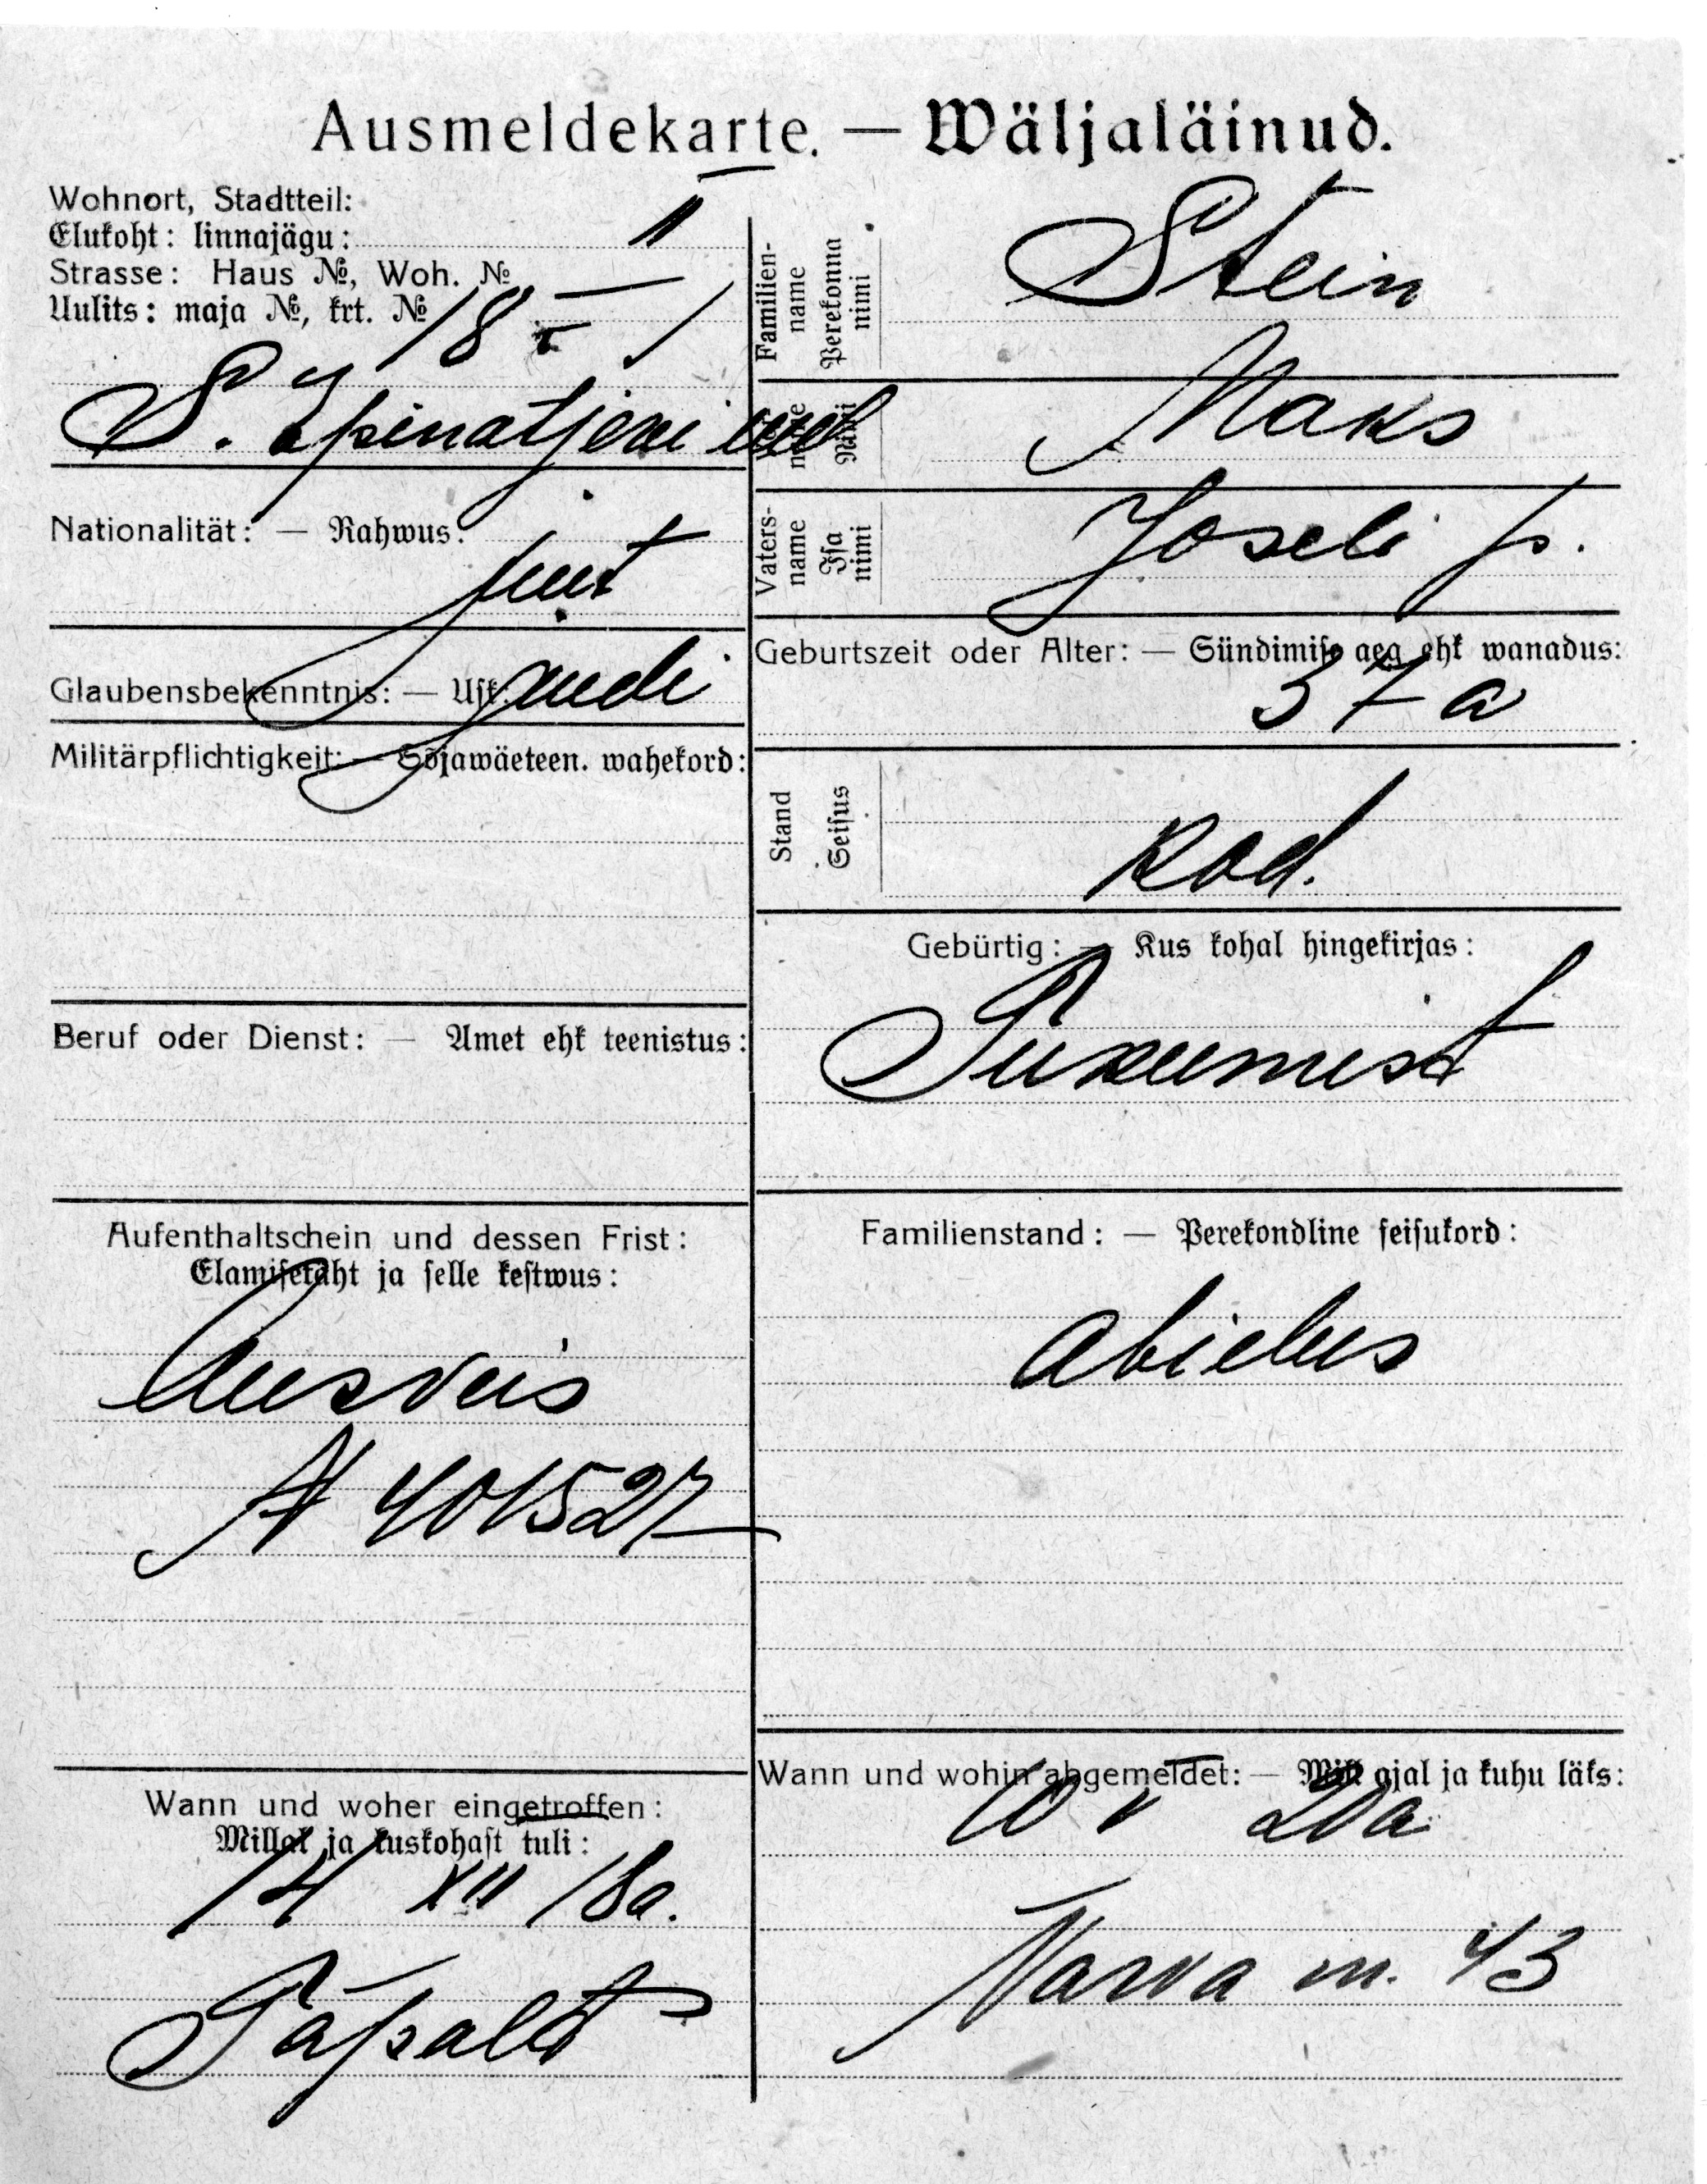 Ausmeldekarte. — Wäljaläinud.
Wohnort, Stadtteil:
Elukoht: linnajägu: II
Strasse: Haus №, Woh. №
Uulits: maja №, krt. № 18 - 1
Nationalität: — Rahwus:
Juut
Glaubensbekenntnis: — Usk: Juudi
Militärpflichtigkeit: — Sõjawäeteen. wahekord:
Beruf oder Dienst: — Amet ehk teenistus:
Aufenthaltschein und dessen Frist:
Elamisetäht ja selle kestwus:
Ausveis
A 401527
Wann und woher eingetroffen:
Millal ja kuskohast tuli:
14 XII 18a.
Tapalt
Familien-
name
Perekonna
nimi
Stein
Nimi
Maks
Vaters-
name
Isa
nimi
Joseli p.
Geburtszeit oder Alter: — Sündimise aeg ehk wanadus:
37 a
Stand
Seisus
kod.
Gebürtig: — Kus kohal hingekirjas:
Tukumist
Familienstand: — Perekondline seisukord:
abielus
Wann und wohin abgemeldet: — Mill ajal ja kuhu läks:
10 V 20a.
Narva m. 43